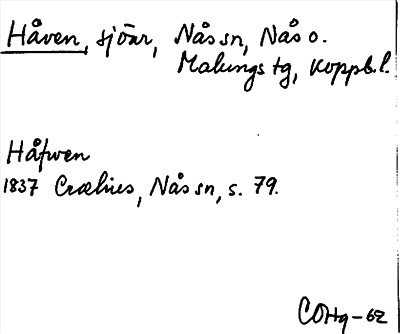 Håven, sjöar, Nås sn, Nås o.
Malungs tg, Koppb.l.
Håfwen
1837 Crælius, Nås sn, s. 79.
COHq-62